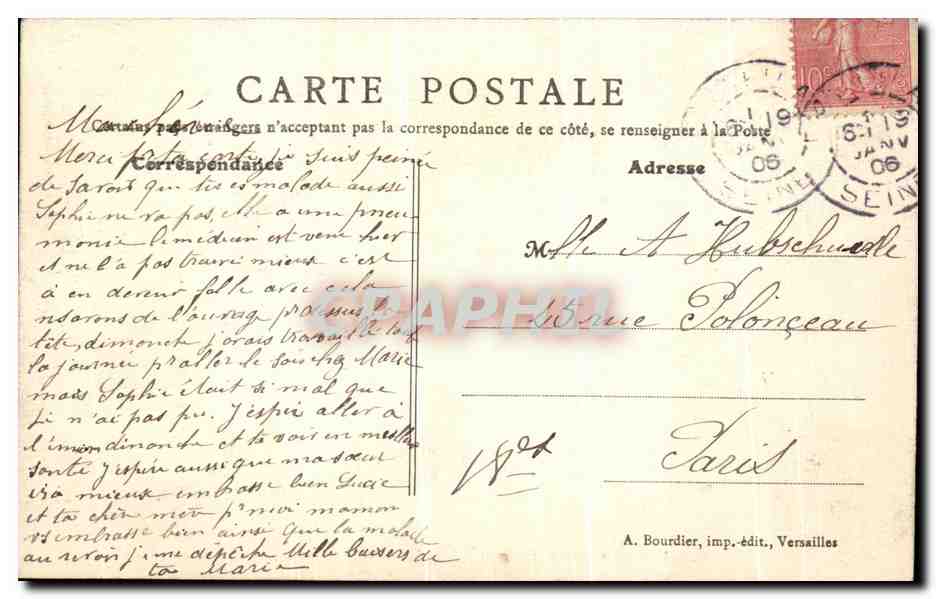 CARTE POSTALE
Certains pays étrangers n'acceptant pas la correspondance de ce côté, se renseigner à la Poste
Correspondance
Adresse
Ma chère
Merci ta carte je suis peinée
de savoir que tu es malade aussi
Sophie ne va pas, elle a une pneu
monie le médecin est venu hier
et ne l'a pas trouvé mieux c'est
à en devenir folle avec cela
ns avons de l'ouvrage pr dessus la
tête, dimanche j'avais travaillé tout
la journée pr aller le soir chez Marie
mais Sophie était si mal que
je n'ai pas pu. J'espère aller à
dimanche et te voir en meilleur
santé j'espère aussi que ma sœur
ira mieux embrasse bien Lucie
et ta chère mère pr moi maman
vs embrasse bien ainsi que la malade
au revoir je me dépêche Mille baisers de
ta Marie
Mlle A
45 rue Polonçeau
Paris
18e
10c
19
JANV
06
SEINE
19
JANV
06
SEINE
CPAPHIL
A. Bourdier, imp.-édit., Versailles